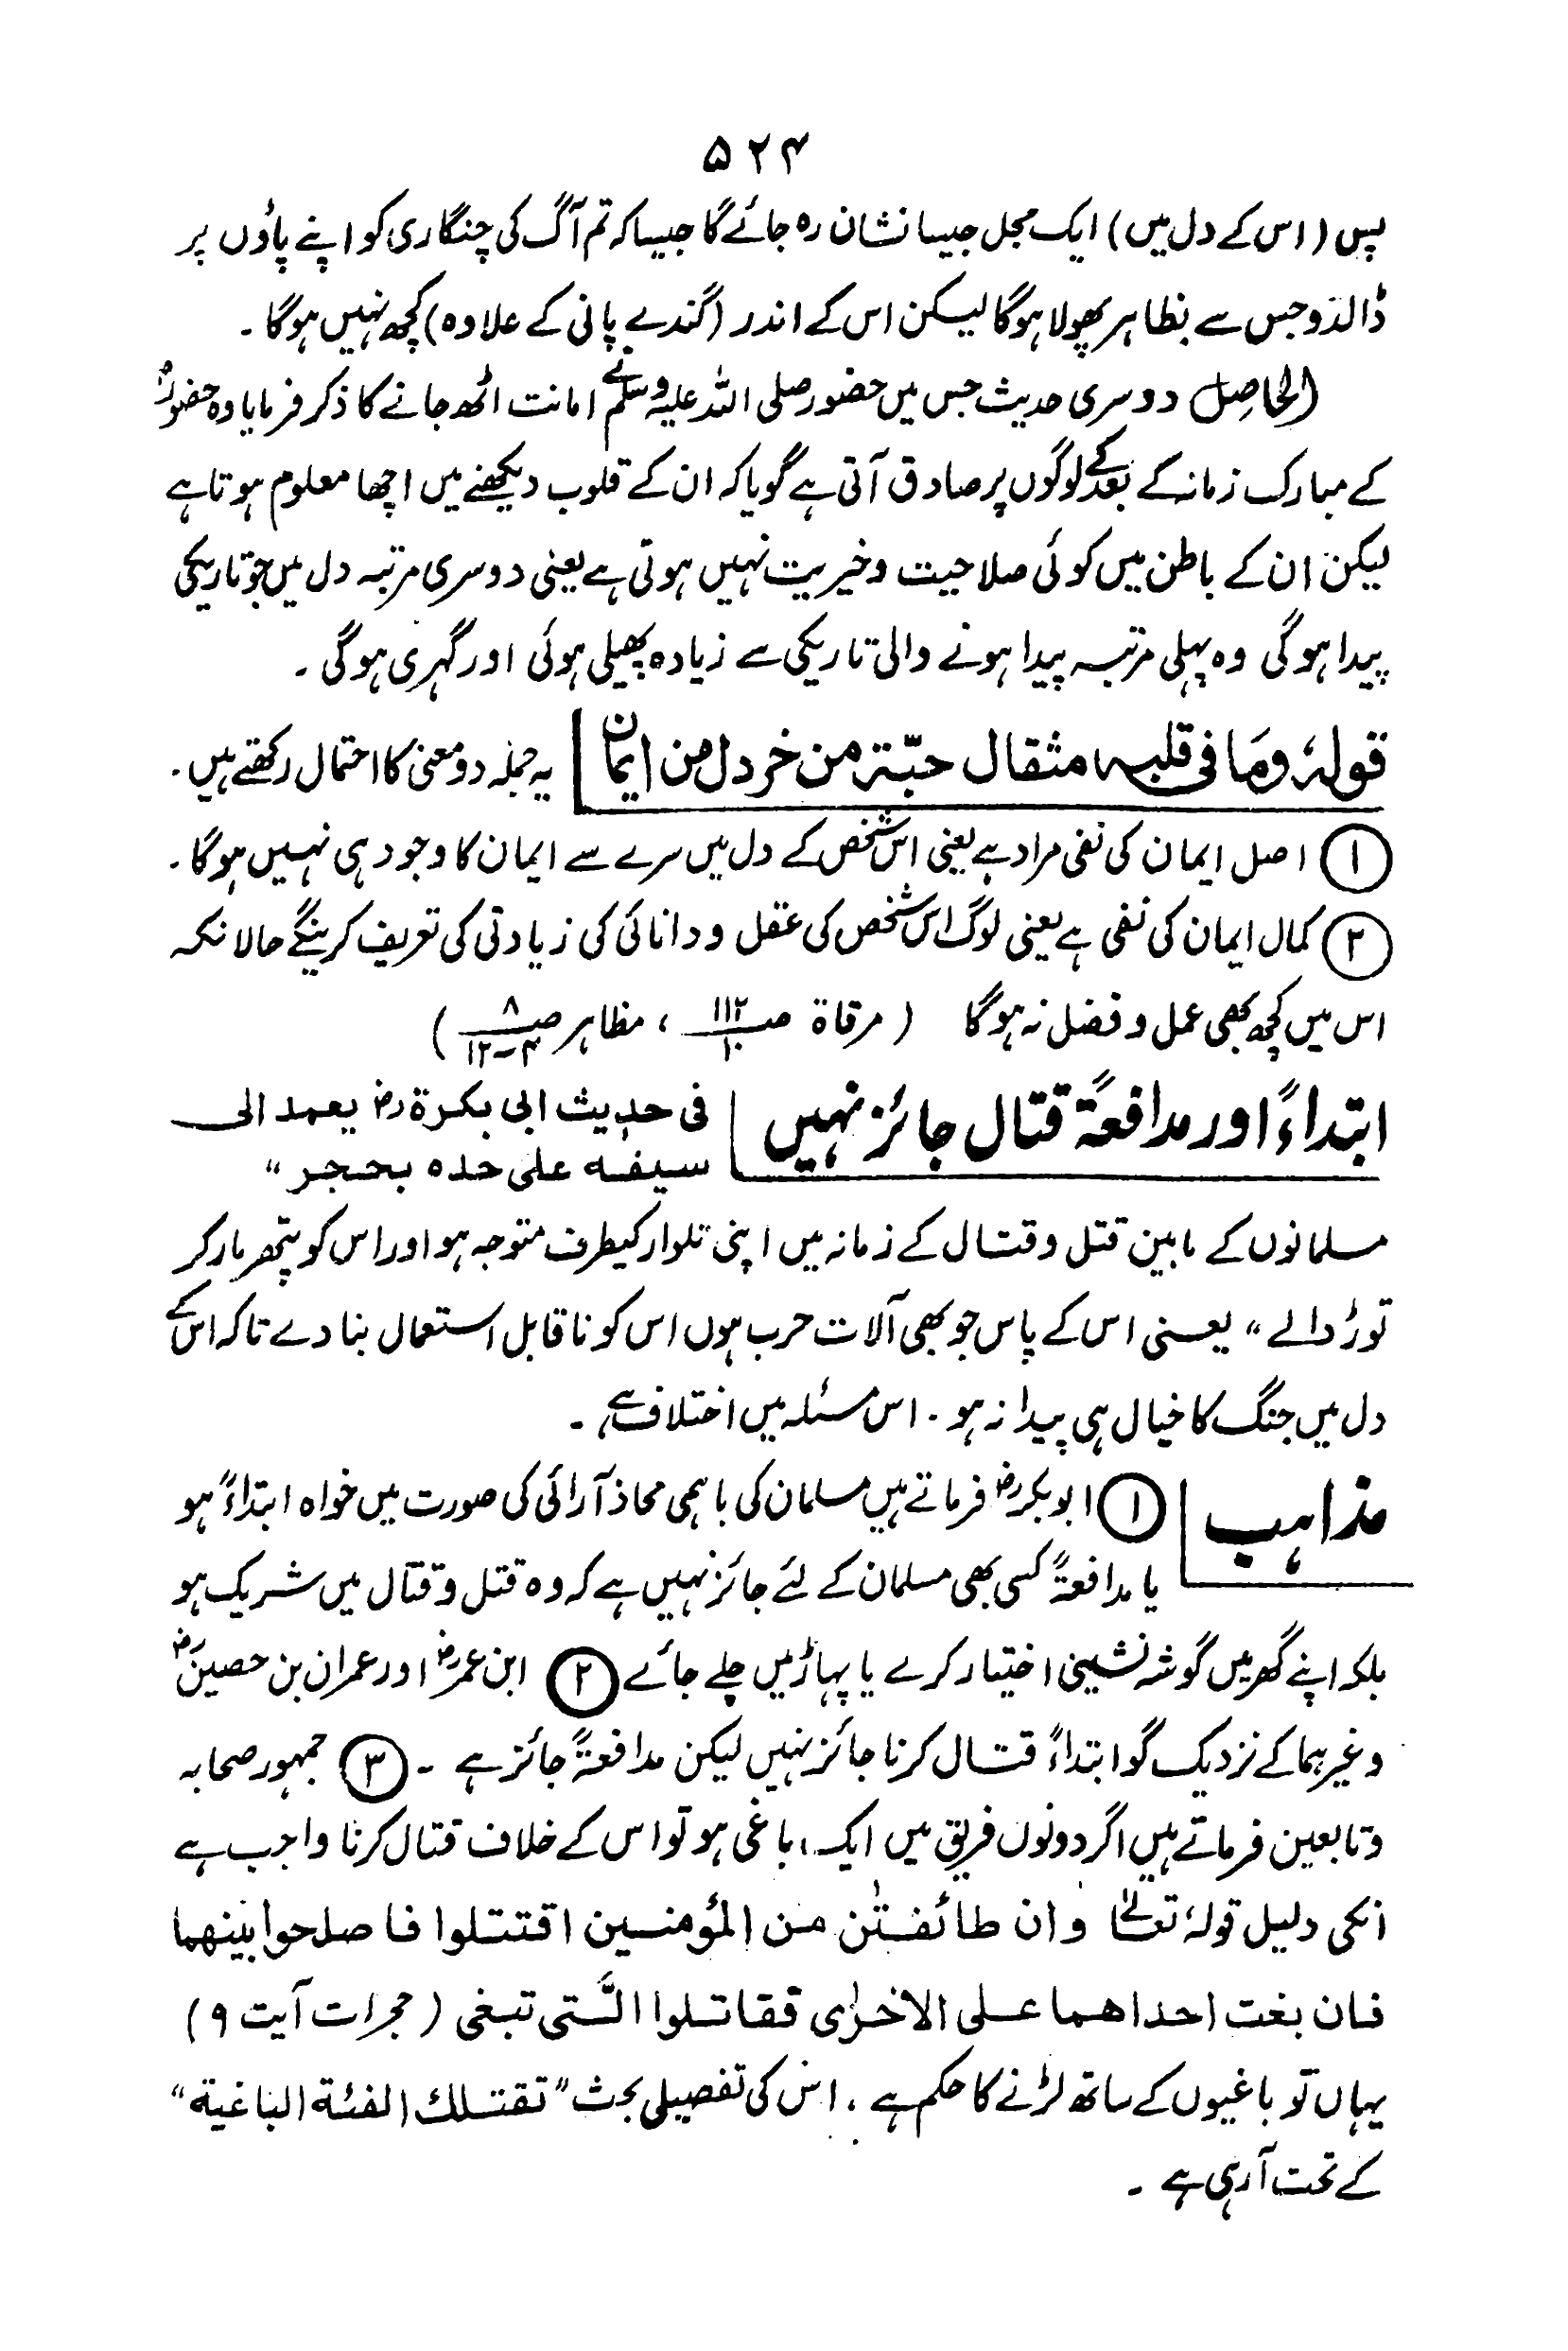 ۵۲۴
پس (اس کے دل میں) ایک مجل جیسا نشان رہ جائے گا جیسا کہ تم آگ کی چنگاری کو اپنے پاؤں پر
ڈالدو جس سے بظاہر پھولا ہوگا لیکن اس کے اندر (گندے پانی کے علاوہ) کچھ نہیں ہوگا ۔
الحاصل دوسری حدیث جس میں حضور صلی اللہ علیہ وسلم نے امانت اٹھ جانے کا ذکر فرمایا وہ حضورؐ
کے مبارک زمانہ کے بعد کے لوگوں پر صادق آتی ہے گویا کہ ان کے قلوب دیکھنے میں اچھا معلوم ہوتا ہے
لیکن ان کے باطن میں کوئی صلاحیت وخیریت نہیں ہوتی ہے یعنی دوسری مرتبہ دل میں جو تاریکی
پیدا ہوگی وہ پہلی مرتبہ پیدا ہونے والی تاریکی سے زیادہ پھیلی ہوئی اور گہری ہوگی ۔
قولہٗ وما فی قلبہ مثقال حبّۃ من خردل من ایمان یہ جملہ دو معنی کا احتمال رکھتے ہیں ۔
① اصل ایمان کی نفی مراد ہے یعنی اس شخص کے دل میں سرے سے ایمان کا وجود ہی نہیں ہوگا ۔
② کمال ایمان کی نفی ہے یعنی لوگ اس شخص کی عقل ودانائی کی زیادتی کی تعریف کرینگے حالانکہ
اس میں کچھ بھی عمل وفضل نہ ہوگا ( مرقاۃ صـ ۱۱۲/۱۰ ، مظاہر صـ ۸/۴-۱۲ )
ابتداءً اور مدافعۃً قتال جائز نہیں فی حدیث ابی بکرۃ رض یعمد الی
سیفہ علی حدہ بحجر "
مسلمانوں کے مابین قتل وقتال کے زمانہ میں اپنی تلوار کیطرف متوجہ ہو اور اس کو پتھر مار کر
توڑ ڈالے " یعنی اس کے پاس جو بھی آلات حرب ہوں اس کو ناقابل استعمال بنا دے تاکہ اس کے
دل میں جنگ کا خیال ہی پیدا نہ ہو ۔ اس مسئلہ میں اختلاف ہے ۔
مذاہب ① ابوبکر رض فرماتے ہیں مسلمان کی باہمی محاذ آرائی کی صورت میں خواہ ابتداءً ہو
یا مدافعۃً کسی بھی مسلمان کے لئے جائز نہیں ہے کہ وہ قتل وقتال میں شریک ہو
بلکہ اپنے گھر میں گوشہ نشینی اختیار کرے یا پہاڑ میں چلے جائے ② ابن عمر رض اور عمران بن حصین رض
وغیرہما کے نزدیک گو ابتداءً قتال کرنا جائز نہیں لیکن مدافعۃً جائز ہے ۔ ③ جمہور صحابہ
وتابعین فرماتے ہیں اگر دونوں فریق میں ایک باغی ہو تو اس کے خلاف قتال کرنا واجب ہے
انکی دلیل قولہٗ تعالیٰ وان طائفتٰن من المؤمنین اقتتلوا فاصلحوا بینھما
فان بغت احداھما علی الاخرٰی فقاتلوا الّتی تبغی (حجرات آیت ۹)
یہاں تو باغیوں کے ساتھ لڑنے کا حکم ہے ، اس کی تفصیلی بحث " تقتلک الفئۃ الباغیۃ "
کے تحت آرہی ہے ۔